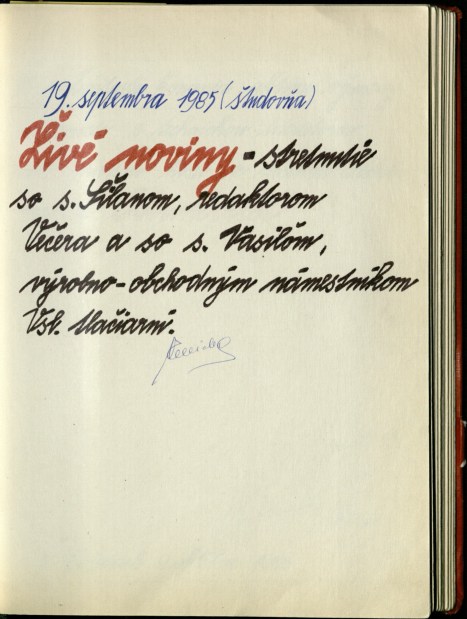 19. septembra 1985 (študovňa)
Živé noviny - stretnutie
so s. Šiľanom, redaktorom
Večera a so s. Vasiľom,
výrobno-obchodným námestníkom
Vsl. tlačiarní.